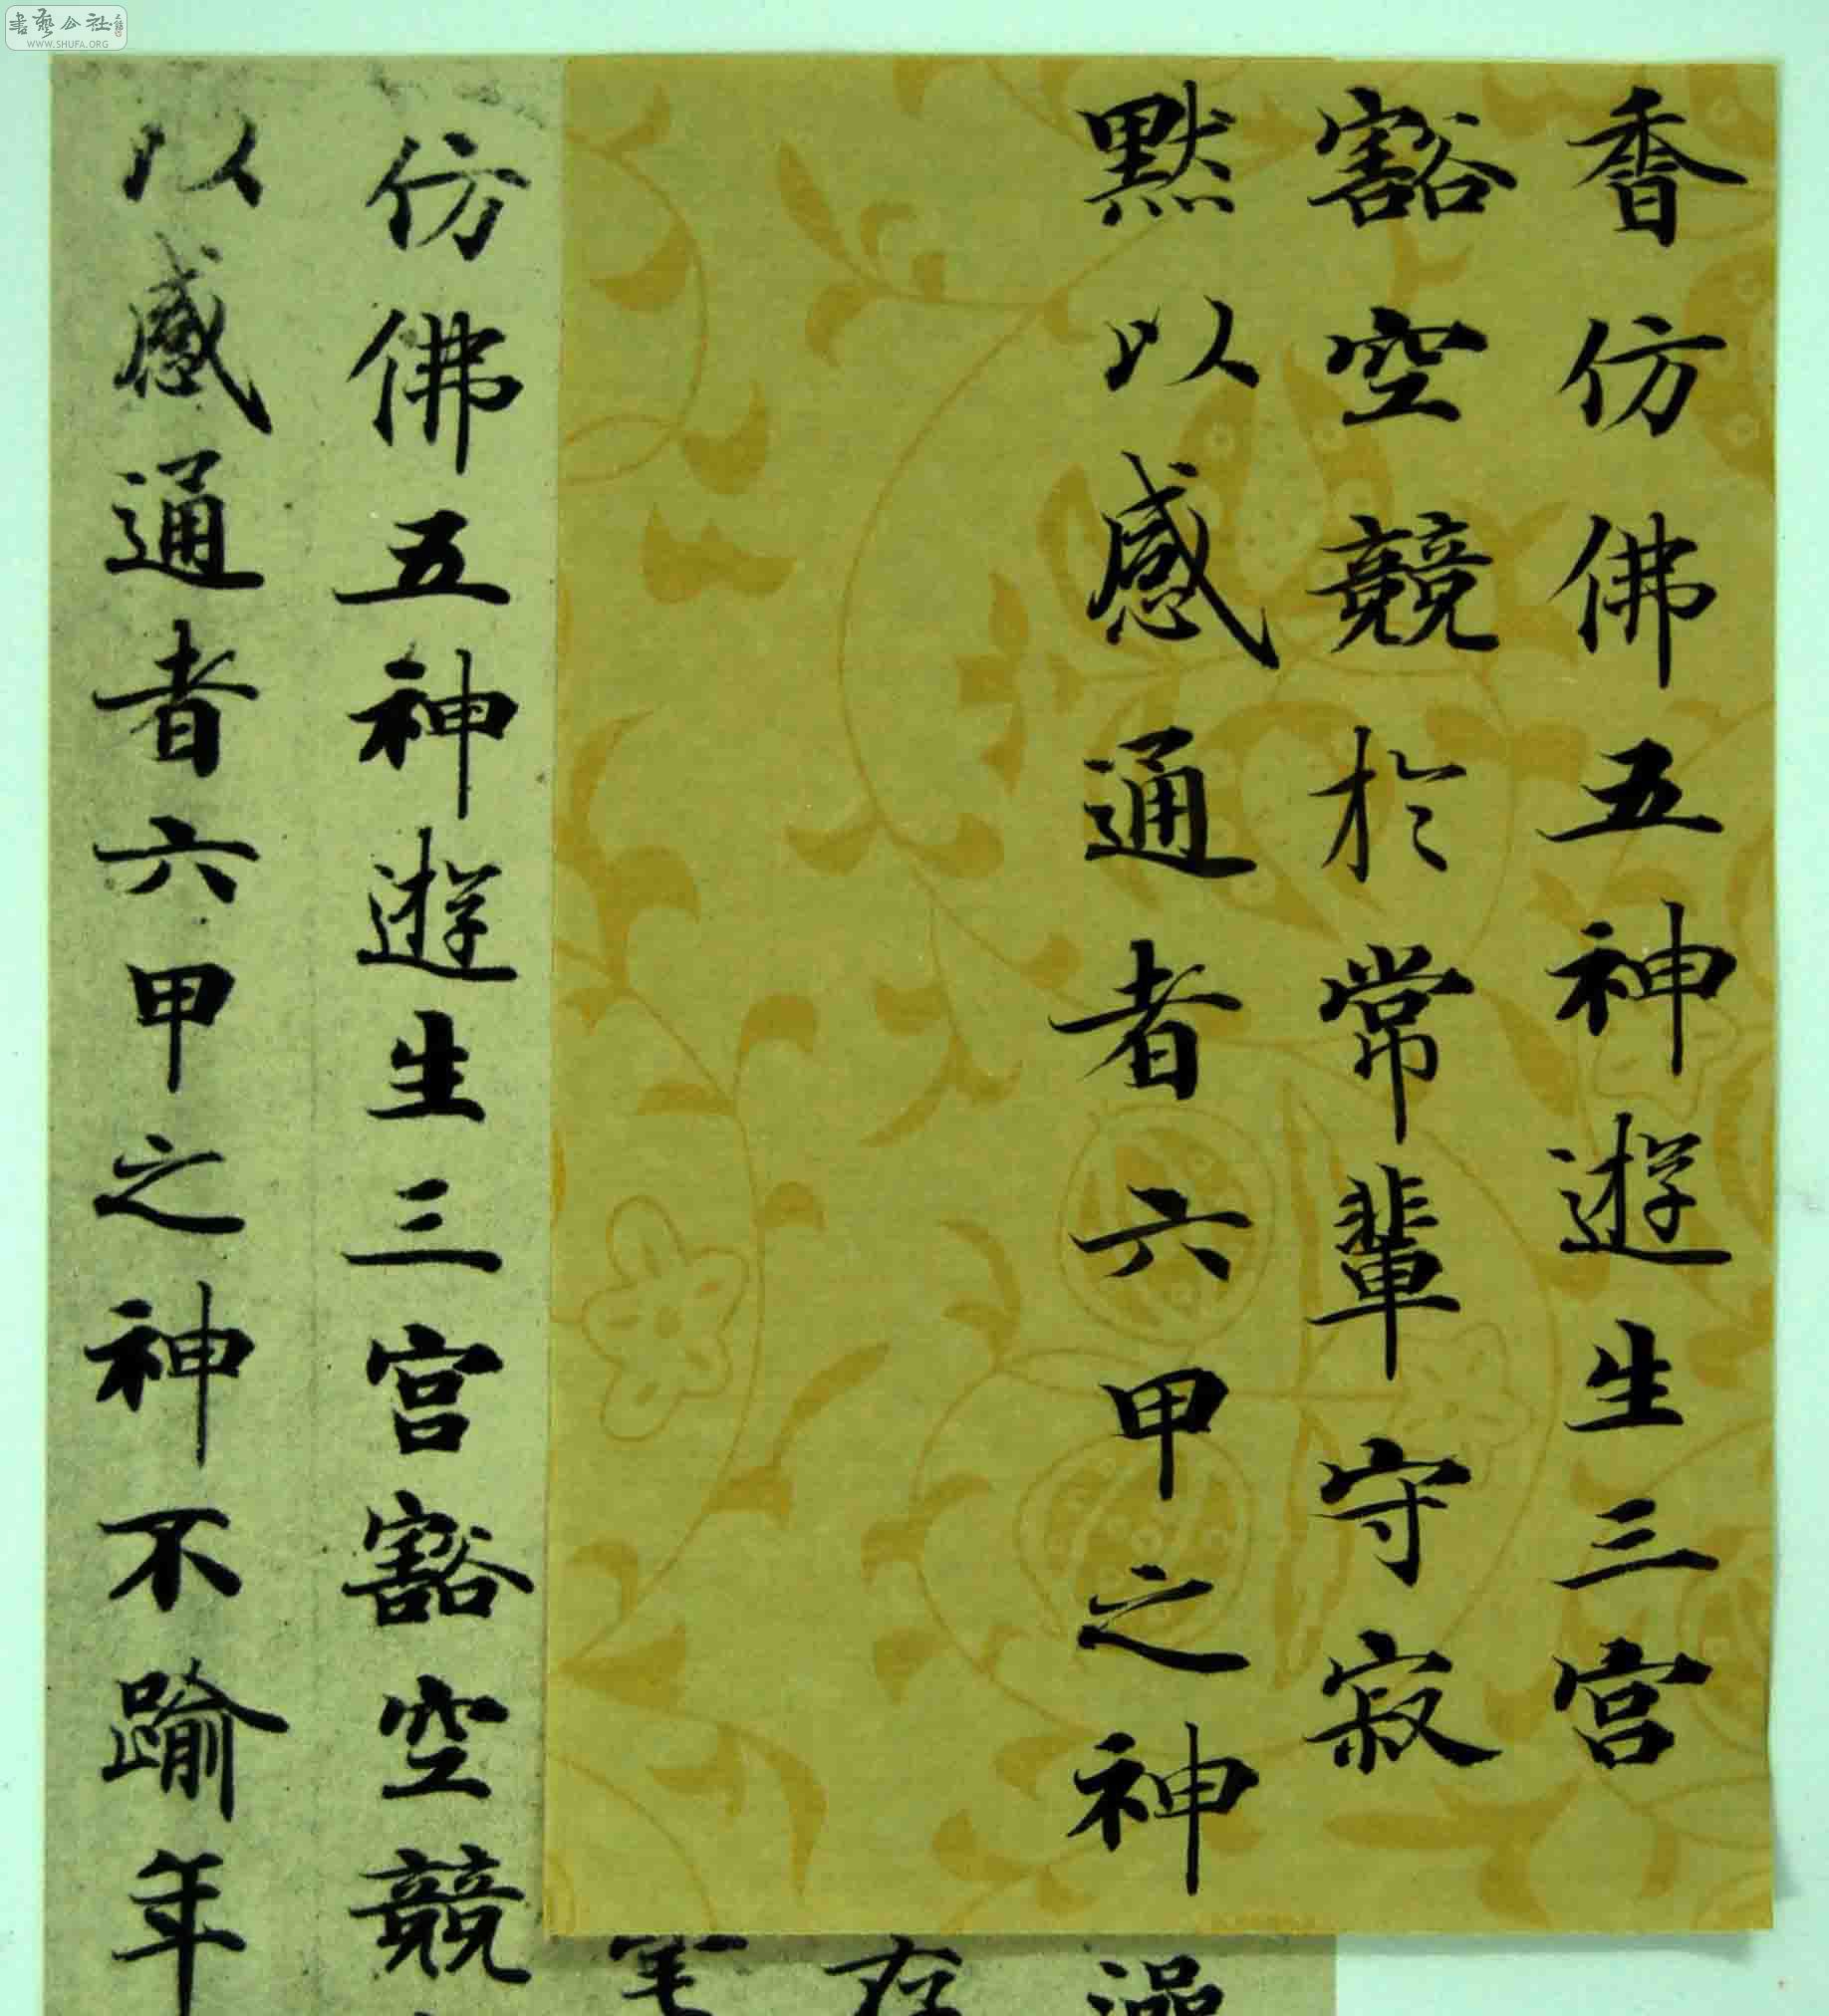 香仿佛五神遊生三宮
豁空競於常輩守寂
默以感通者六甲之神
仿佛五神遊生三宮豁空競
以感通者六甲之神不踰年
書藝公社
WWW.SHUFA.ORG